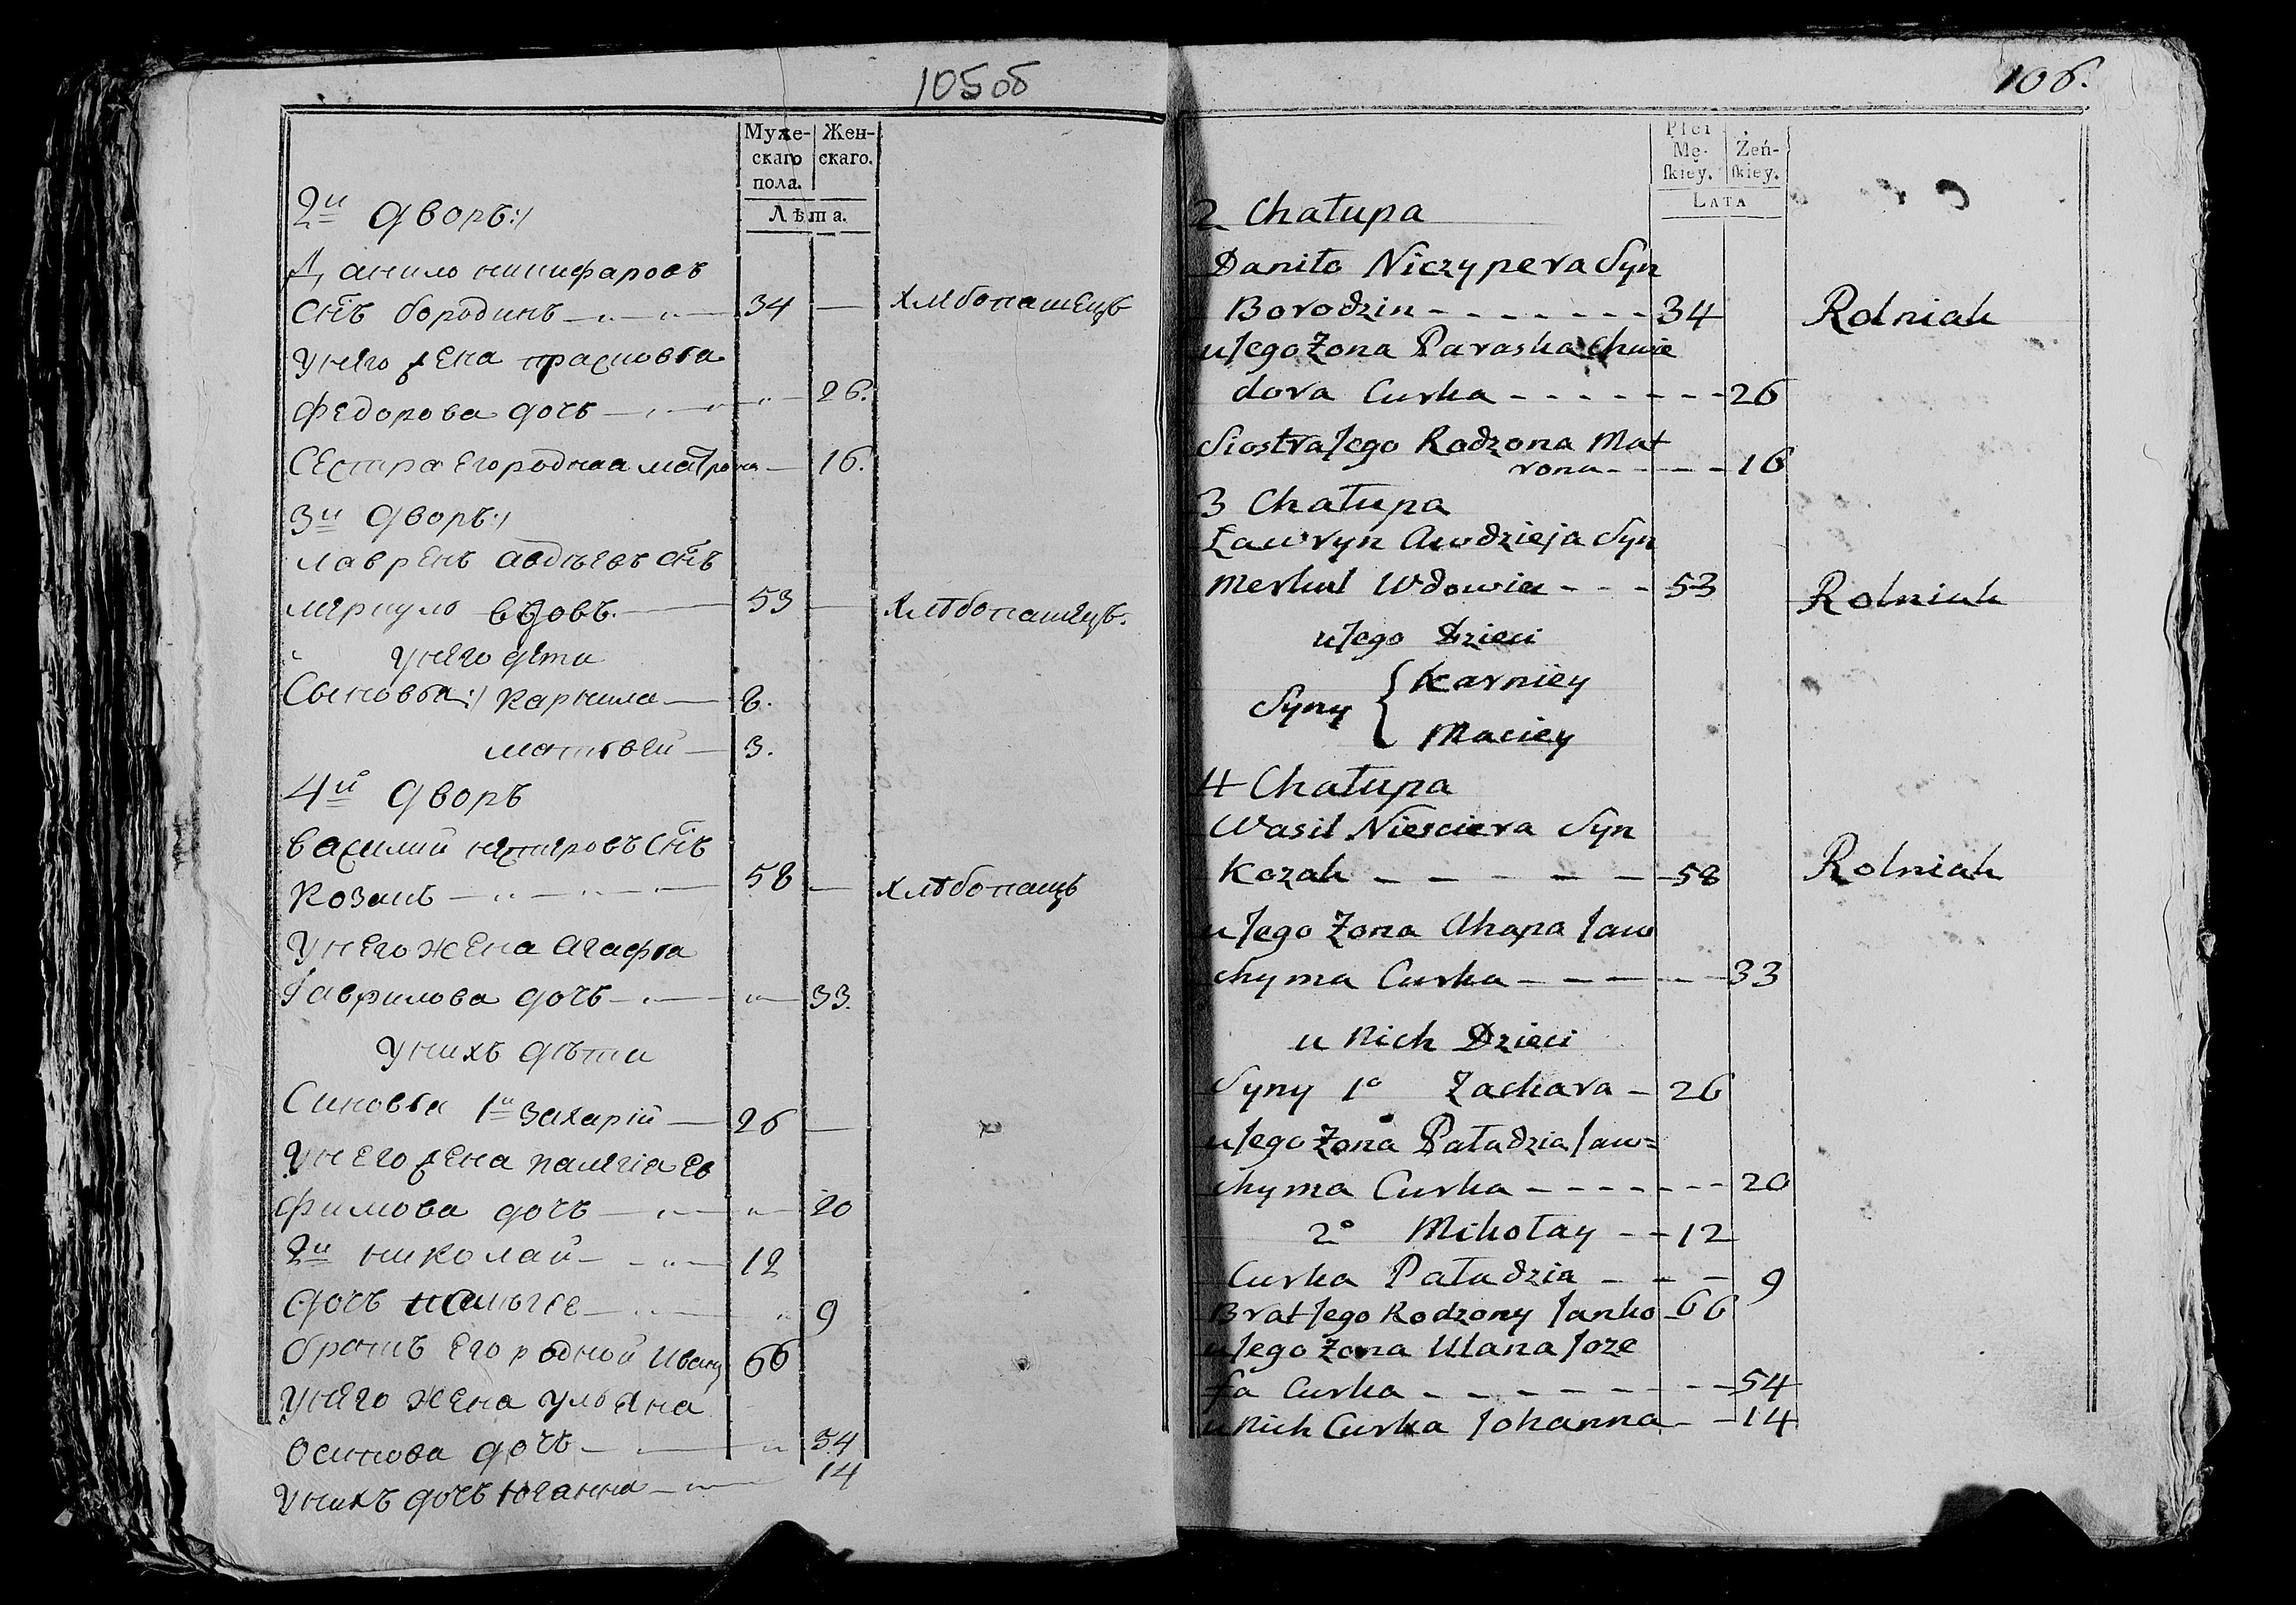 105об
Муже- Жен-
скаго скаго.
пола.
Лѣта.
2й дворъ:/
Данило никифаровъ
снъ бородинъ 34 — хлебопашецъ
унего жена прасковѣа
федорова дочъ 26.
сестра егороднаа матрона 16.
3й дворъ:/
лаврѣнъ авдѣевъ снъ
меркуло вдовъ. 53 — хлѣбопашецъ.
унего дети
Сыновѣа:/ карнила — 8.
матвѣй — 3.
4й дворъ
василий нестеровъ снъ
козакъ 58 — хлѣбопацъ
унего жена агафѣа
гаврилова дочъ 33.
унихъ дѣти
Синовѣа 1й захарiй — 26 —
унего жена палегiа ев
фимова дочъ 20
2й николай 12
дочъ палѣгѣе 9
братъ его родной иванъ 66
унего жена ульяна
осипова дочъ 54
унихъ дочъ юганна 14
106.
Płci
Mę- Żeń-
ſkiey. ſkiey.
LATA
2 Chałupa
Daniło Niczypera Syn
Borodzin - - - - - - - - 34 Rolniak
u Jego Żona Paraska Chwie
dora Curka - - - - - - - 26
Siostra Jego Rodzona Mat
rona - - - - 16
3 Chałupa
Ławryn Awdzieja Syn
Merkul Wdowiec - - - 53 Rolniak
u Jego Dzieci
Syny { Karniey
Maciey
4 Chałupa
Wasil Niesciera Syn
Kozak - - - - - - 58 Rolniak
u Jego Żona Ahapa Jaw
chyma Curka - - - - - 33
u Nich Dzieci
Syny 1° Zachara - 26
u Jego Żona Paładzia Jaw=
chyma Curka - - - - - - - 20
2° Mikołay - - 12
Curka Paładzia - - - 9
Brat Jego Rodzony Janko - 66
u Jego Żona Ulana Joze
fa Curka - - - - - - - - 54
u Nich Curka Johanna - - 14